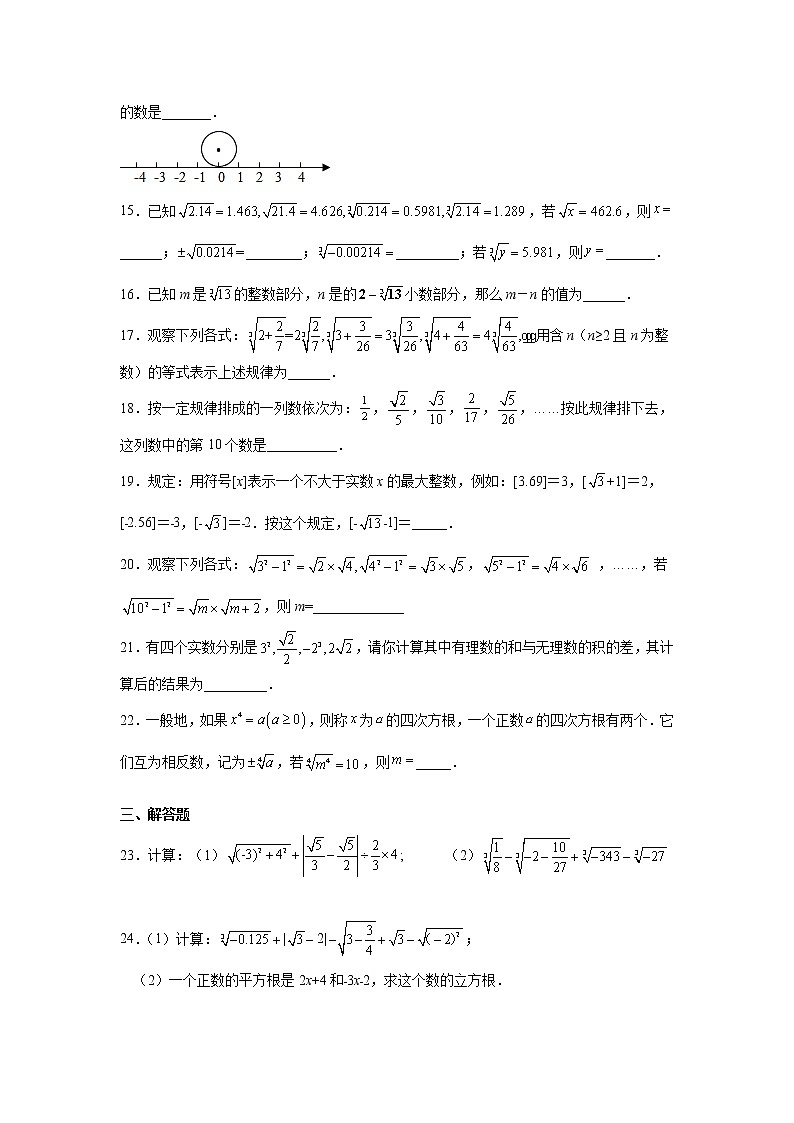 的数是_______．
-4 -3 -2 -1 0 1 2 3 4
15．已知√2.14＝1.463,√21.4＝4.626,∛0.214＝0.5981,∛2.14＝1.289，若√x＝462.6，则x＝
______；±√0.0214＝________；∛-0.00214＝_________；若∛y＝5.981，则y＝_______．
16．已知m是∛13的整数部分，n是的2－∛13小数部分，那么m－n的值为______．
17．观察下列各式：∛(2+2/7)=2∛(2/7),∛(3+3/26)=3∛(3/26),∛(4+4/63)=4∛(4/63),ggg用含n（n≥2且n为整
数）的等式表示上述规律为______．
18．按一定规律排成的一列数依次为：1/2，√2/5，√3/10，2/17，√5/26，……按此规律排下去，
这列数中的第10个数是__________．
19．规定：用符号[x]表示一个不大于实数x的最大整数，例如：[3.69]＝3，[√3+1]＝2，
[-2.56]＝-3，[-√3]＝-2．按这个规定，[-√13-1]＝_____．
20．观察下列各式：√(3²-1²)=√2×√4,√(4²-1²)=√3×√5，√(5²-1²)=√4×√6 ，……，若
√(10²-1²)=√m×√(m+2)，则m=_____________
21．有四个实数分别是3²,√2/2,-2³,2√2，请你计算其中有理数的和与无理数的积的差，其计
算后的结果为_________．
22．一般地，如果x⁴=a(a≥0)，则称x为a的四次方根，一个正数a的四次方根有两个．它
们互为相反数，记为±∜a，若∜(m⁴)=10，则m=_____．
三、解答题
23．计算：（1）√((-3)²+4²)+|√5/3-√5/2|÷2/3×4; （2）∛(1/8)-∛(-2-10/27)+∛-343-∛-27
24．（1）计算：∛-0.125+|√3-2|-√(3-3/4)+√3-√((-2)²)；
（2）一个正数的平方根是2x+4和-3x-2，求这个数的立方根．